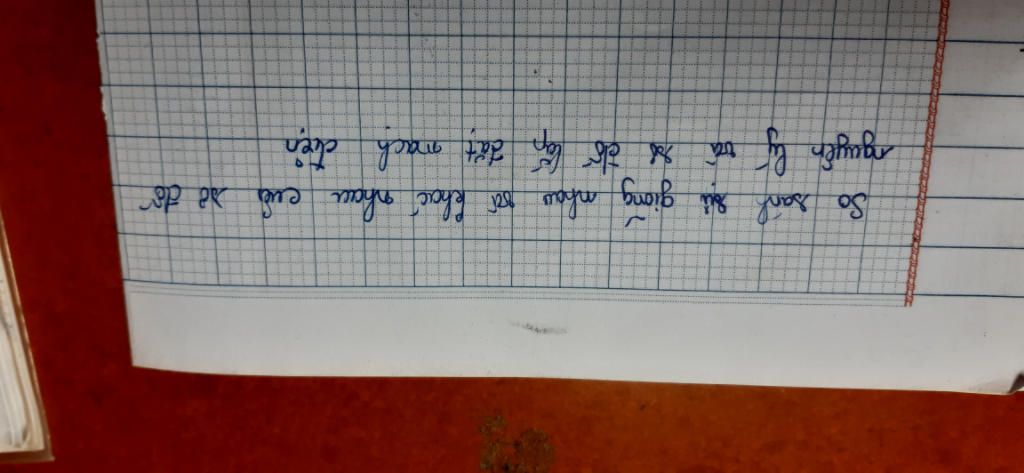 So sánh sự giống nhau và khác nhau của sơ đồ
nguyên lý và sơ đồ lắp đặt mạch điện